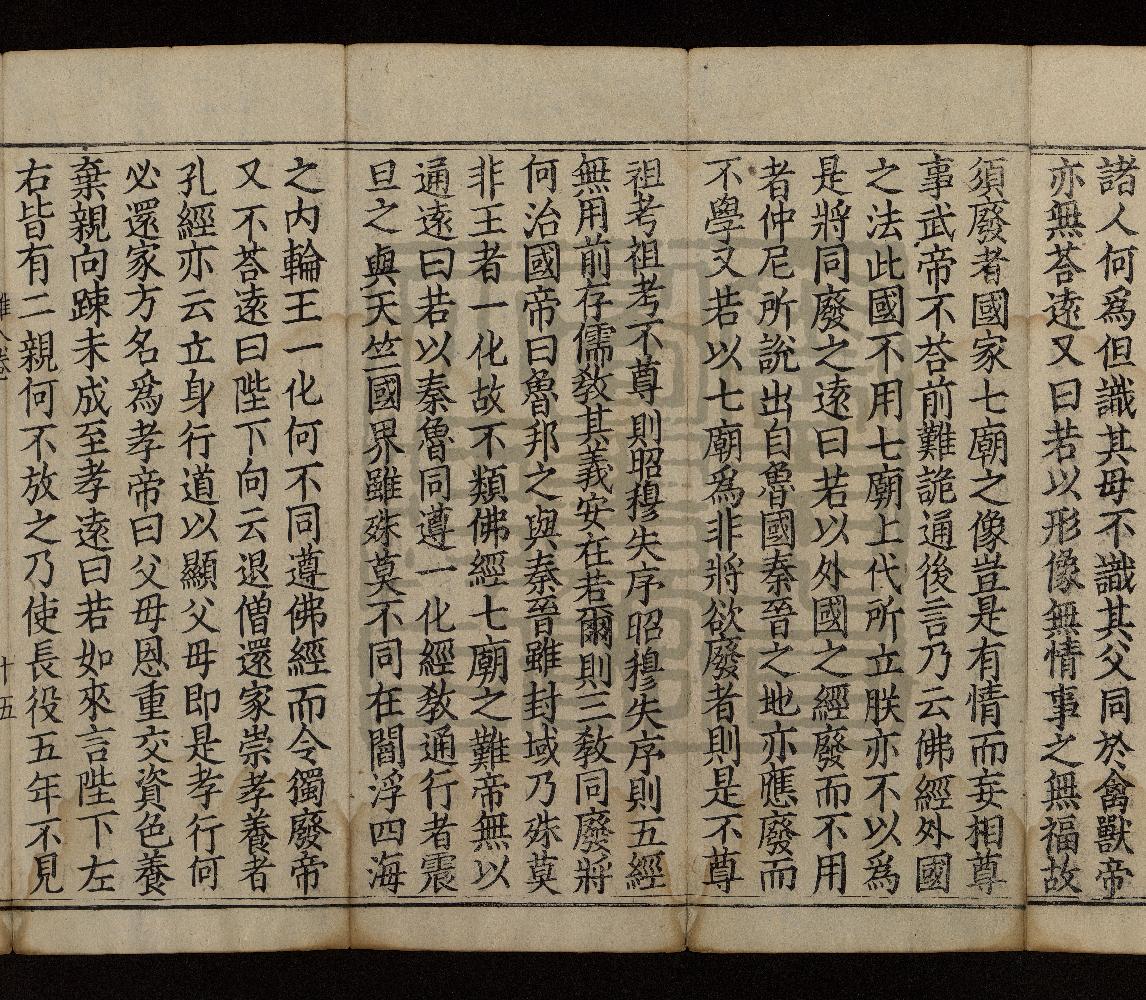 諸人何爲但識其母不識其父同於禽獸帝
亦無荅遠又曰若以形像無情事之無福故
須廢者國家七廟之像豈是有情而妄相尊
事武帝不荅前難詭通後言乃云佛經外國
之法此國不用七廟上代所立朕亦不以爲
是將同廢之遠曰若以外國之經廢而不用
者仲尼所說出自魯國秦晉之地亦應廢而
不學又若以七廟爲非將欲廢者則是不尊
祖考祖考不尊則昭穆失序昭穆失序則五經
無用前存儒教其義安在若爾則三教同廢將
何治國帝曰魯邦之與秦晉雖封域乃殊莫
非王者一化故不類佛經七廟之難帝無以
通遠曰若以秦魯同遵一化經教通行者震
旦之與天竺國界雖殊莫不同在閻浮四海
之內輪王一化何不同遵佛經而令獨廢帝
又不荅遠曰陛下向云退僧還家崇孝養者
孔經亦云立身行道以顯父母即是孝行何
必還家方名爲孝帝曰父母恩重交資色養
棄親向踈未成至孝遠曰若如來言陛下左
右皆有二親何不放之乃使長役五年不見
十五